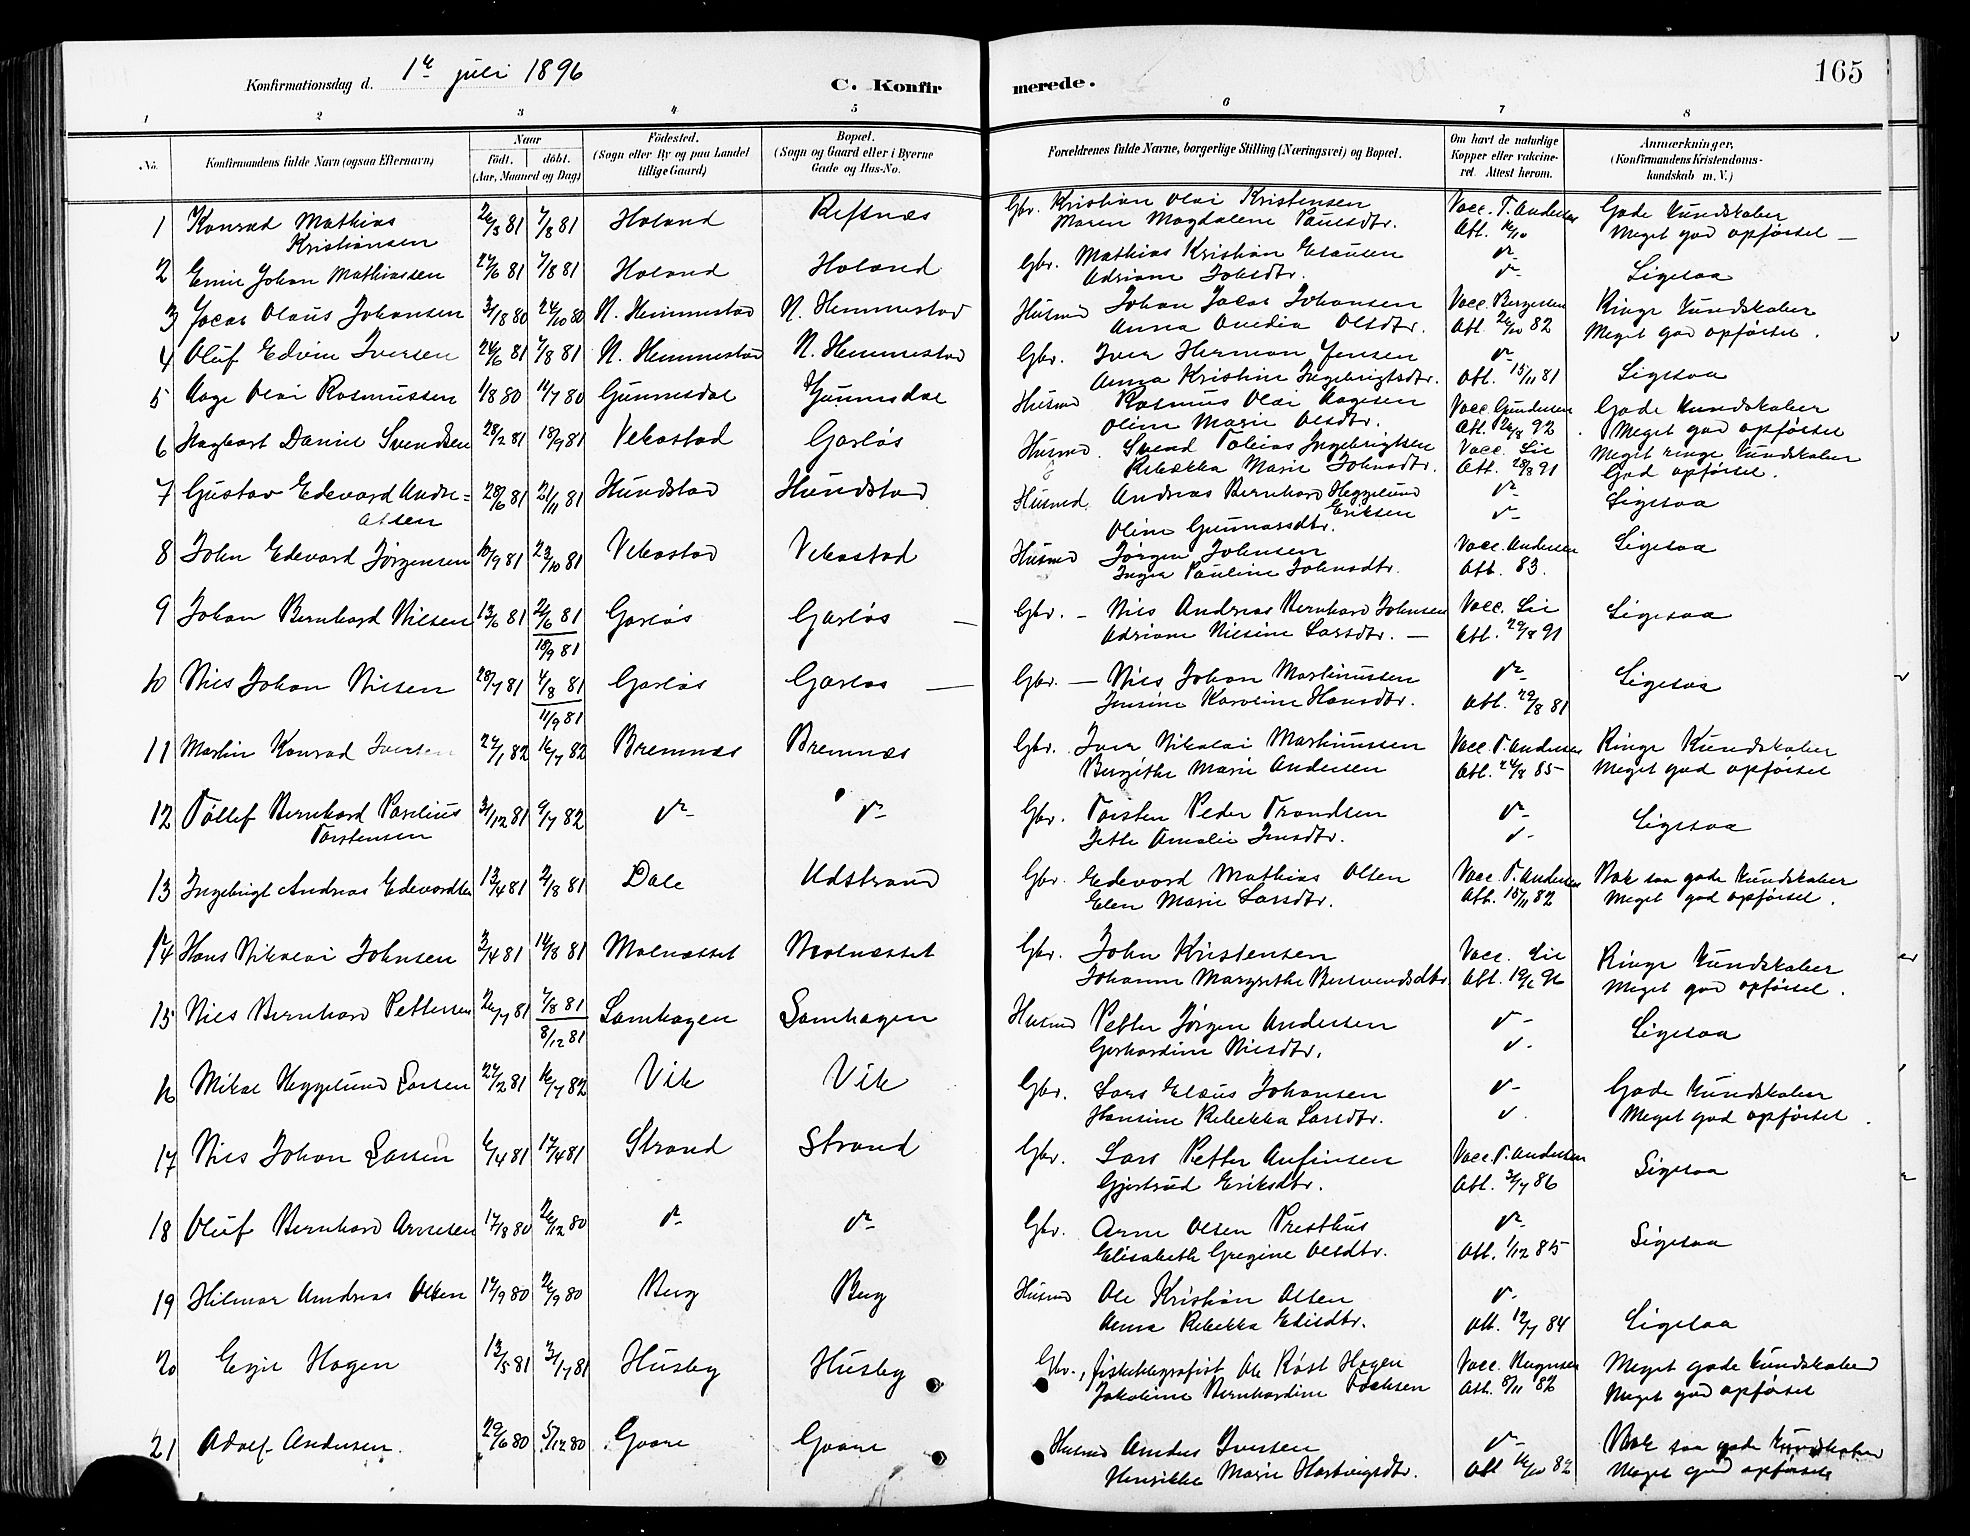 165
Konfirmationsdag d. 1te juli 1896
C. Konfirmerede.
1 2 3 4 5 6 7 8
No. Konfirmandens fulde Navn (ogsaa Efternavn) Naar født. døbt. (Aar, Maaned og Dag) Födested. (Sogn eller By og paa Landet tillige Gaard) Bopæl. (Sogn og Gaard eller i Byerne Gade og Hus-No. Forældrenes fulde Navne, borgerlige Stilling (Næringsvei) og Bopæl. Om havt de naturlige Kopper eller vaccineret. Attest herom. Anmærkninger, (Konfirmandens Kristendomskundskab m. V.)
1 Konrad Mathias Kristiansen 26/3 81 7/8 81 Holand Refsnæs Gbr. Kristian Olai Kristensen Vacc. T. Andersen Gode Kundskaber
Maren Magdalene Paulsdtr. Att. Meget god opførsel —
2 Emil Johan Mathiassen 27/6 81 7/8 81 Holand Holand Gbr. Mathias Kristian Elausen Ligesaa
Adriane Johsdtr.
3 Jacob Olaus Johansen 3/18 80 24/10 80 N. Hemmestad N. Hemmestad Husmd Johan Jacob Johansen Vacc. Bergesen Ringe Kundskaber
Anna Anedia Olsdtr. Att. 82 Meget god opførsel.
4 Oluf Edvin Iversen 24/6 81 7/8 81 N. Hemmestad N. Hemmestad Gbr. Iver Herman Jensen
Anna Kristine Ingebrigtsdtr. Att. 15/11 81 Ligesaa
5 Aage Olai Rasmussen 1/8 80 11/7 80 Gunnesdal Gunnesdal Husmd Rasmus Olai Aagesen Vacc. Gundersen Gode Kundskaber
Oline Marie Olsdtr. Att. 26/8 92. Meget god opførsel
6 Hagbart Daniel Svendsen 28/2 81 18/9 81 Vebostad Garløs Husmd. Svend Tobias Ingebrigtsen Vacc. Lie Meget ringe Kundskaber
Rebekka Marie Johnsdtr. Att. 28/8 91 God opførsel.
7 Gustav Edevard Andreassen 28/6 81 21/11 81 Hundstad Hundstad Husmd. Andreas Bernhard Heggelund Eriksen Ligesaa
Oline Gunnarsdtr.
8 John Edevard Jørgensen 10/9 81 23/10 81 Vebostad Vebostad Husmd Jørgen Johnsen Vacc. Andersen Ligesaa
Inga Pauline Johnsdtr. Att. 83.
9 Johan Bernhard Nilsen 13/6 81 26/6 81 18/9 81 Garløs Garløs — Gbr. – Nils Andreas Bernhard Johnsen Vacc. Lie Ligesaa
Adriane Nilsine Larsdtr. — Att. 29/8 91
10 Nils Johan Nilsen 28/7 81 4/8 81 11/9 81 Garløs Garløs — Gbr. — Nils Johan Martinussen Ligesaa
Jensine Karoline Hansdtr. Att. 29/8 81
11 Martin Konrad Iversen 24/1 82 16/7 82 Bremnæs Bremnæs Gbr. Iver Nikolai Martinussen Vacc. T. Andersen Ringe Kundskaber
Bergithe Marie Andersen Att. 24/8 85 Meget god opførsel
12 Tollef Bernhard Parelius Torstensen 31/12 81 9/7 82 Gbr. Torsten Peder Trondsen Ligesaa
Jette Amalie Jensdtr.
13 Ingebrigt Andreas Edevardsen 13/4 81 2/8 81 Dale Udstrand Gbr. Edevard Mathias Olsen Vacc. T. Andersen Nok saa gode Kundskaber
Elen Marie Larsdtr. Att. 15/11 82 Meget god opførsel.
14 Hans Nikolai Johnsen 3/4 81 14/8 81 Molnæsset Molnæsset Gbr. John Kristensen Vacc. Lie Ringe Kundskaber
Johanne Margrethe Berntsvendsdtr Att. 19/6 96 Meget god opførsel.
15 Nils Bernhard Pettersen 26/7 81 7/8 81 8/12 81 Lamhagen Lamhagen Husmd Petter Jørgen Andersen Ligesaa
Gerhardine Nilsdtr.
16 Mikal Heggelund Larsen 27/2 81 16/7 82 Vik Vik Gbr. Lars Elaus Johansen Gode Kundskaber
Hansine Rebekka Larsdtr. Meget god opførsel.
17 Nils Johan Larsen 6/4 81 17/4 81 Strand Strand Gbr. Lars Petter Anfinsen Vacc. T. Andersen Ligesaa
Gjertrud Eriksdtr. Att. 3/7 86
18 Oluf Bernhard Arnesen 17/8 80 26/12 80 Gbr. Arne Olsen Presthus Ligesaa
Elisabeth Gregine Olsdtr. Att. 1/12 85
19 Hilmar Andreas Olsen 14/9 80 26/9 80 Berg Berg Husmd Ole Kristian Olsen
Anna Rebekka Edisdtr. Att. 12/7 84 Ligesaa
20 Egil Hagen 13/5 81 31/7 81 Husby Husby Gbr., fisketelegrafist Ole Røst Hagen Vacc. Magnsen Meget gode Kundskaber
Jakobine Bernhardine Fochsen Att. 8/11 82 Meget god opførsel
21 Adolf Andersen. 29/6 80 5/12 80 Gaare Gaare Husmd Anders Iversen Nok saa gode Kundskaber
Henrikke Marie Hartvigsdtr. Att 16/10 82 Meget god opførsel